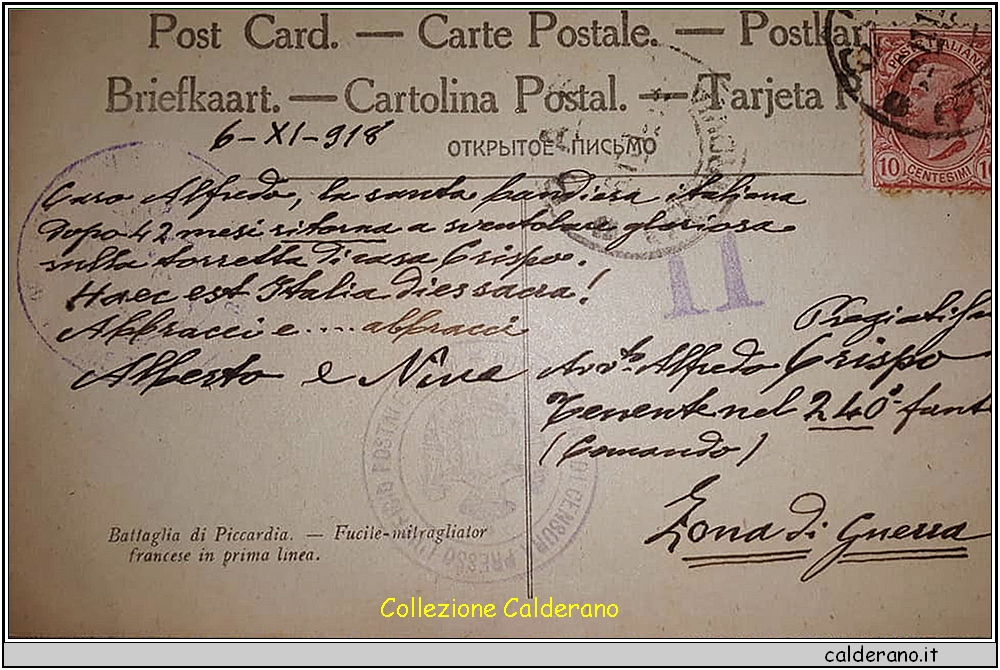 Post Card. — Carte Postale. — Postkar
Briefkaart. — Cartolina Postal. — Tarjeta
6-XI-918
ОТКРЫТОЕ ПИСЬМО
POSTE ITALIANE
10 CENTESIMI 10
Caro Alfredo, la santa bandiera italiana
dopo 42 mesi ritorna a sventolare gloriosa
sulla torretta di casa Crispo.
Haec est Italia dies sacra!
Abbracci e .... abbracci
Alberto e Nive
11
Avv.to Alfredo Crispo
Tenente nel 240° fant
(Comando)
Zona di Guerra
DI CENSURA PRESSO
Battaglia di Piccardia. — Fucile-mitragliator
francese in prima linea.
Collezione Calderano
calderano.it